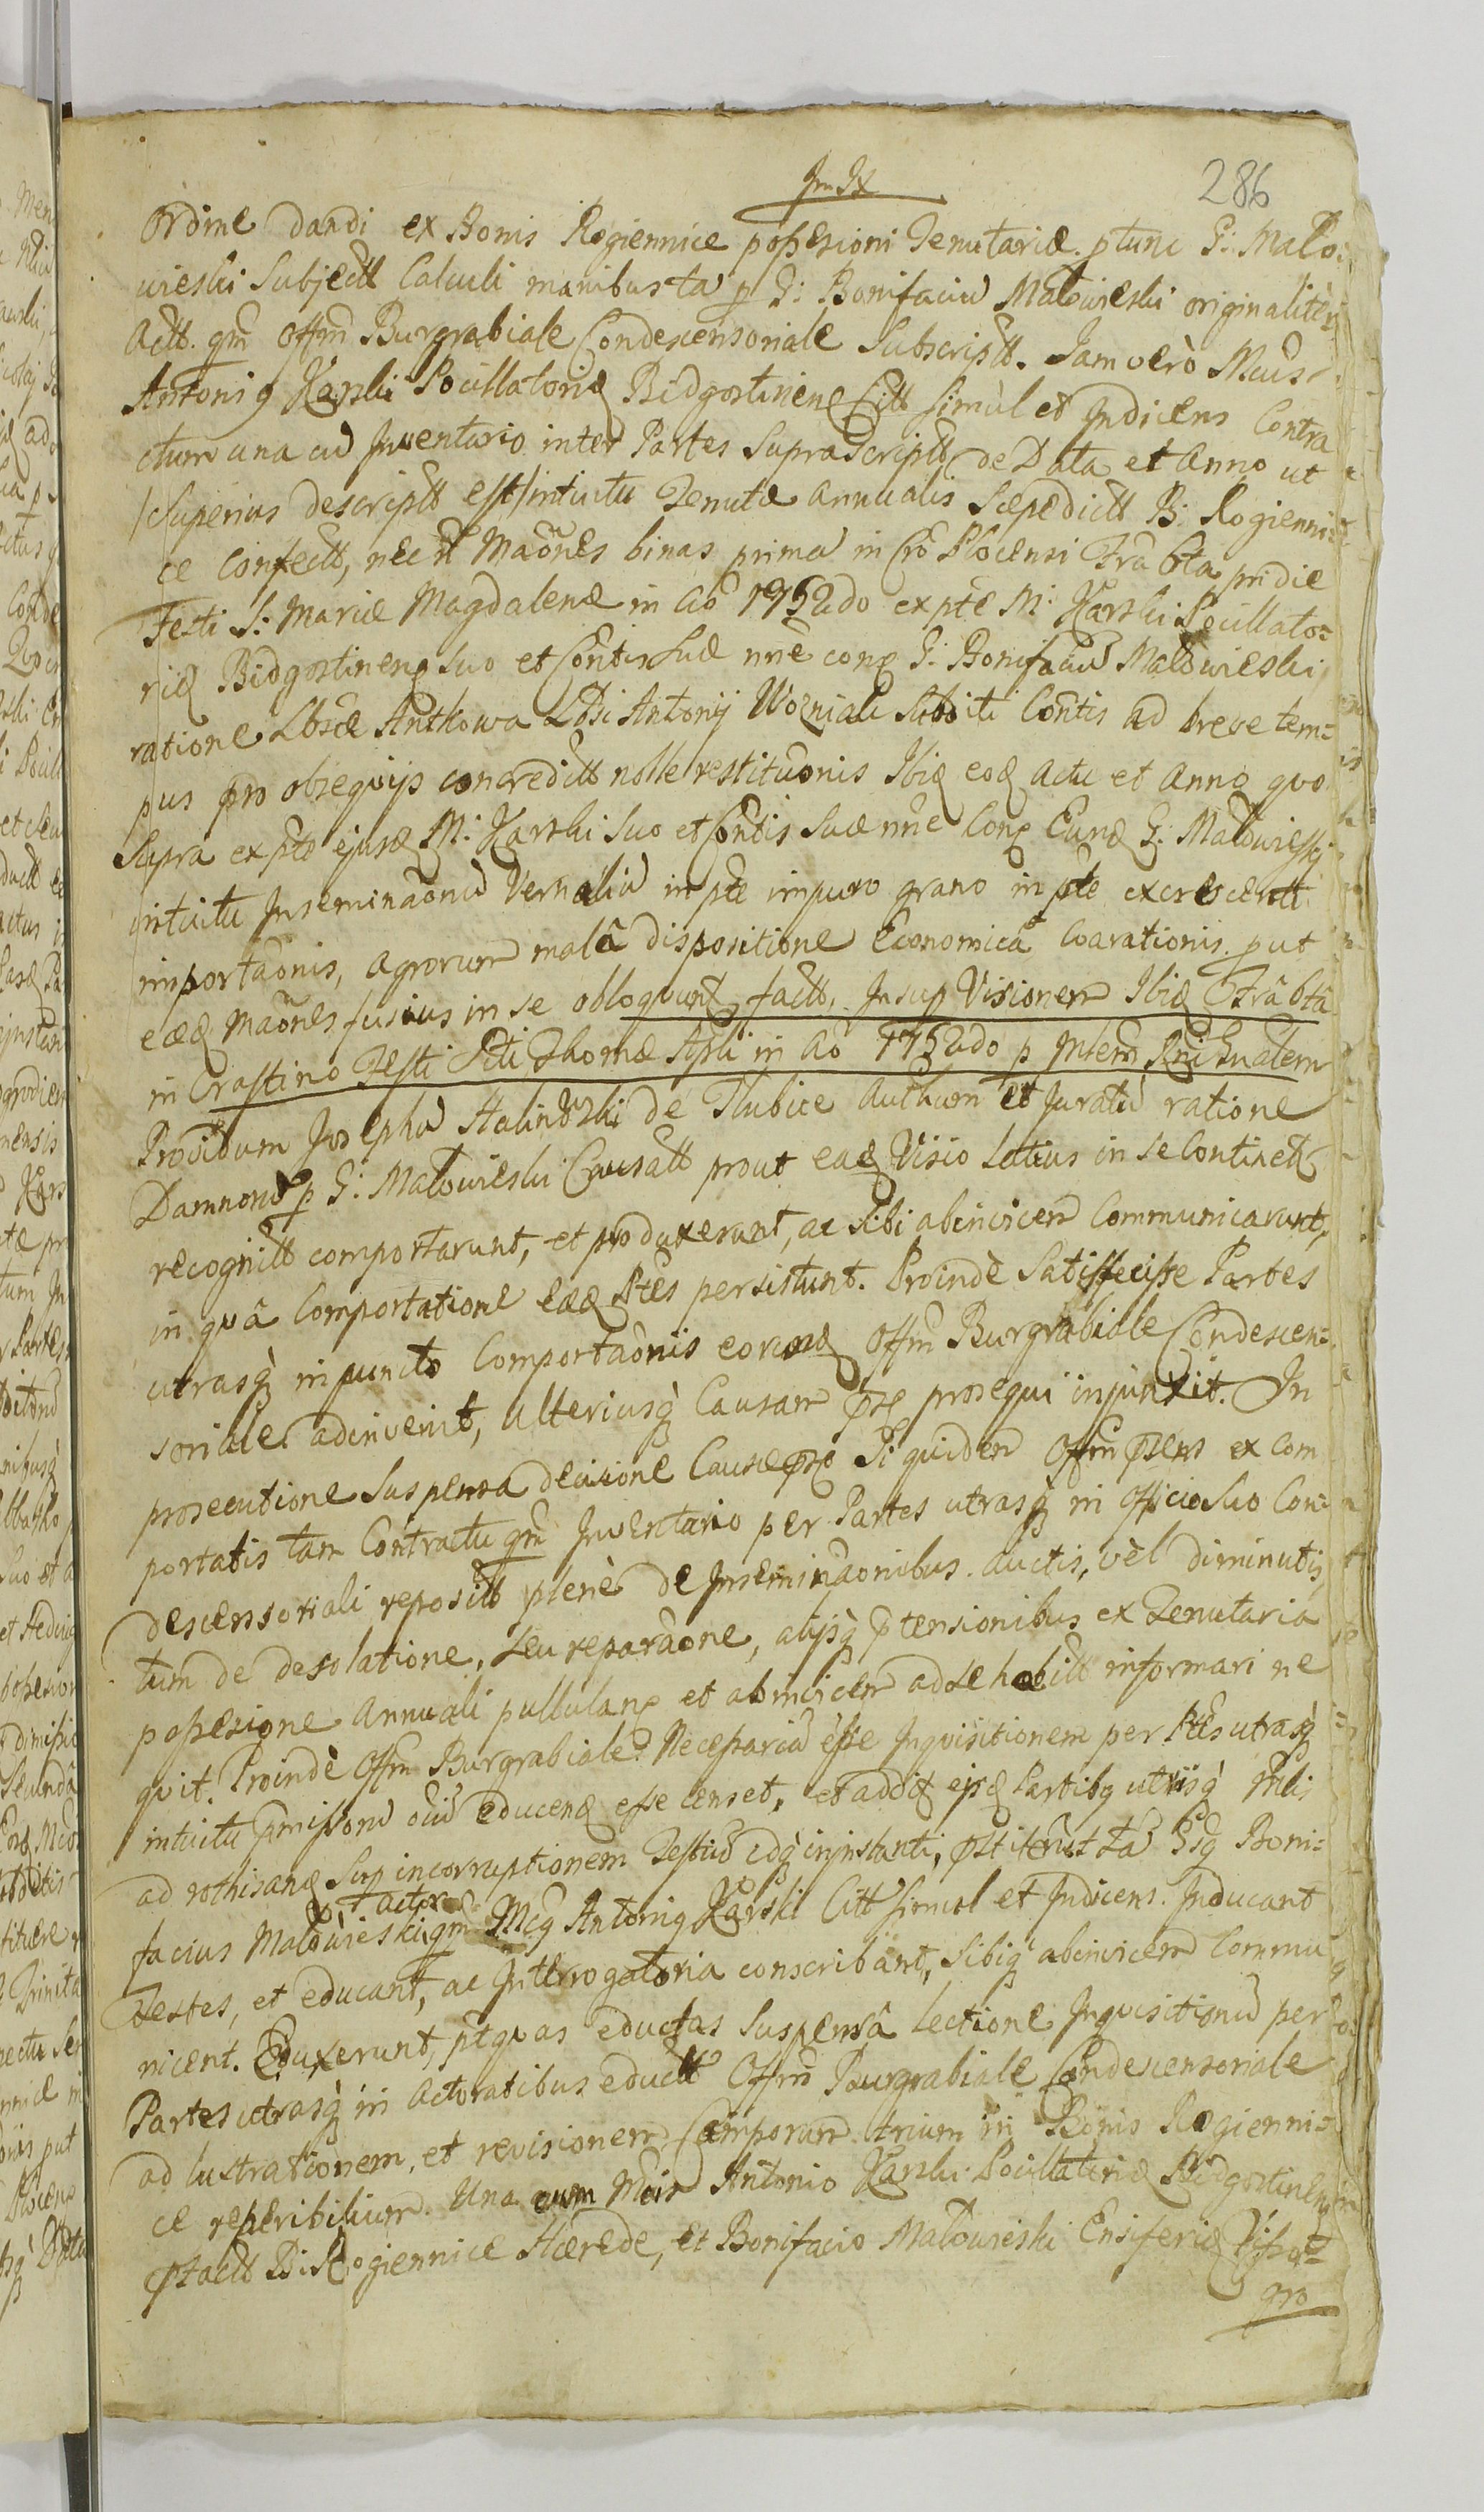 286
ordine dandi ex Bonis Rogiennice possessioni Tenutariæ ptunc G: Malo:
wieski Subjectt Calculi manibus ta p G: Bonifaciu Malowieski originalitèr
Actt. qm Offm Burgrabiale Condescensoriale Subscriptt. Jam verò Mcus
Antonig Karski Pocillatorid Bidgostinens Citt simùl et Indicens Contra
ctum una cu Inventario inter Partes Suprascriptt de Data et Anno ut
/Superius descriptt est/ intuitu Tenutæ annualis Sæpedictt B: Rogienni:
ce confectt, nec n Maones binas prima in Cro Plocensi Fra 6ta pridie
Festi S: Mariæ Magdalenæ in Ao 1752do ex pte M: Karski Pocillato:
rid Bidgostinens suo et Contis suæ nne conq G: Bonifaciu Malowieski
ratione Antkowa Antonij Wozniak Subditi Contis ad breve tem:
pus pro obsequijs concreditt nolle restituonis Ibid eod actu et Anno quo
Supra ex pte ejusd M: Karski suo et Contis suæ nne Conq Eund G: Malowieski
intuitu Inseminaonu Vernaliu in pte impuro grano in pte excrescentt
importaonis, agrorum malâ dispositione Economicâ Coarationis, put
eæd Maones fusius in se obloquunt, factt. Insup Visionem Ibid Frâ 6tâ
in Crastino Festi Sti Thomæ Apli in Ao 1752do p Msem Gnalem
Providum Josephu Stalinski de Tlubice authum et Juratu ratione
Damnoru p G: Malowieski Causatt prout ead Visio latius in se Continet
recognitt comportarunt, et produxerunt, ac Sibi abinvicem Communicarunt,
in quâ Comportatione eæd Ptes persistunt. Proindè Satisfecisse Partes
utrasq in puncto Comportaonis eorund Offm Burgrabiale Condescen:
soriale adinvenit, ulteriusq Causam prosequi injunxit. In
prosecutione Suspensa decisione Causæ Siquidem Offm psens ex com
portatis tam Contractu qm Inventario per Partes utrasq in Officio Suo Con:
descensoriali repositt plenè de Inseminaonibus auctis, vèl diminutis,
tum de desolatione, seu reparaone, alijsq ptensionibus ex Tenutaria
possesione annuali pullulans et abinvicem ad se habitt informari ne
quit. Proindè Offm Burgrabiale Necessariu esse Inquisitionem per Ptes utrasq
intuitu pmissoru oiu educend esse censet, et addit ejsd Partibq utrisq
ad rothisand Sup incorruptionem Testiu idq in instanti, pstiterunt ta Gsq Boni:
facius Malowieski Actor qm Mcq Antonig Karski Citt simul et Indicens. Inducant
Testes, et educant, ac Interrogatoria conscribant, Sibiq abinvicem Commu
nicent. Eduxerunt, ptquas eductas Suspensâ lectione Inquisitionu per
Partes utrasq in actoratibus eductt Offm Burgrabiale Condescensoriale
ad lustrationem, et revisionem Camporum trium in Bonis Rogienni:
ce reperibilium. Una cum Mcis Antonio Karski Pocillatorid Bidgostinens
pstactt B: Rogiennice Hærede, et Bonifacio Malowieski Ensiferid Visso:
gro